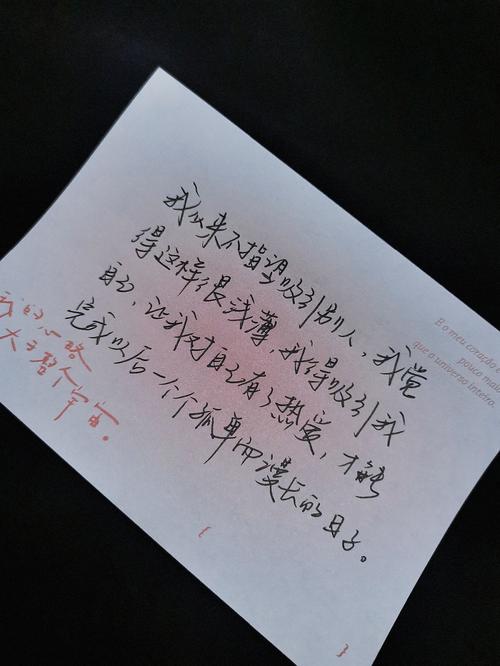 我从来不指望吸引别人，我觉
得这样很浅薄，我得吸引我
自己，让我对自己有了热爱，才能
完成以后一个个孤单而漫长的日子。
我的心略
大于整个
宇宙。
E o meu coração é
pouco ma
que o universo inteiro.
{
}